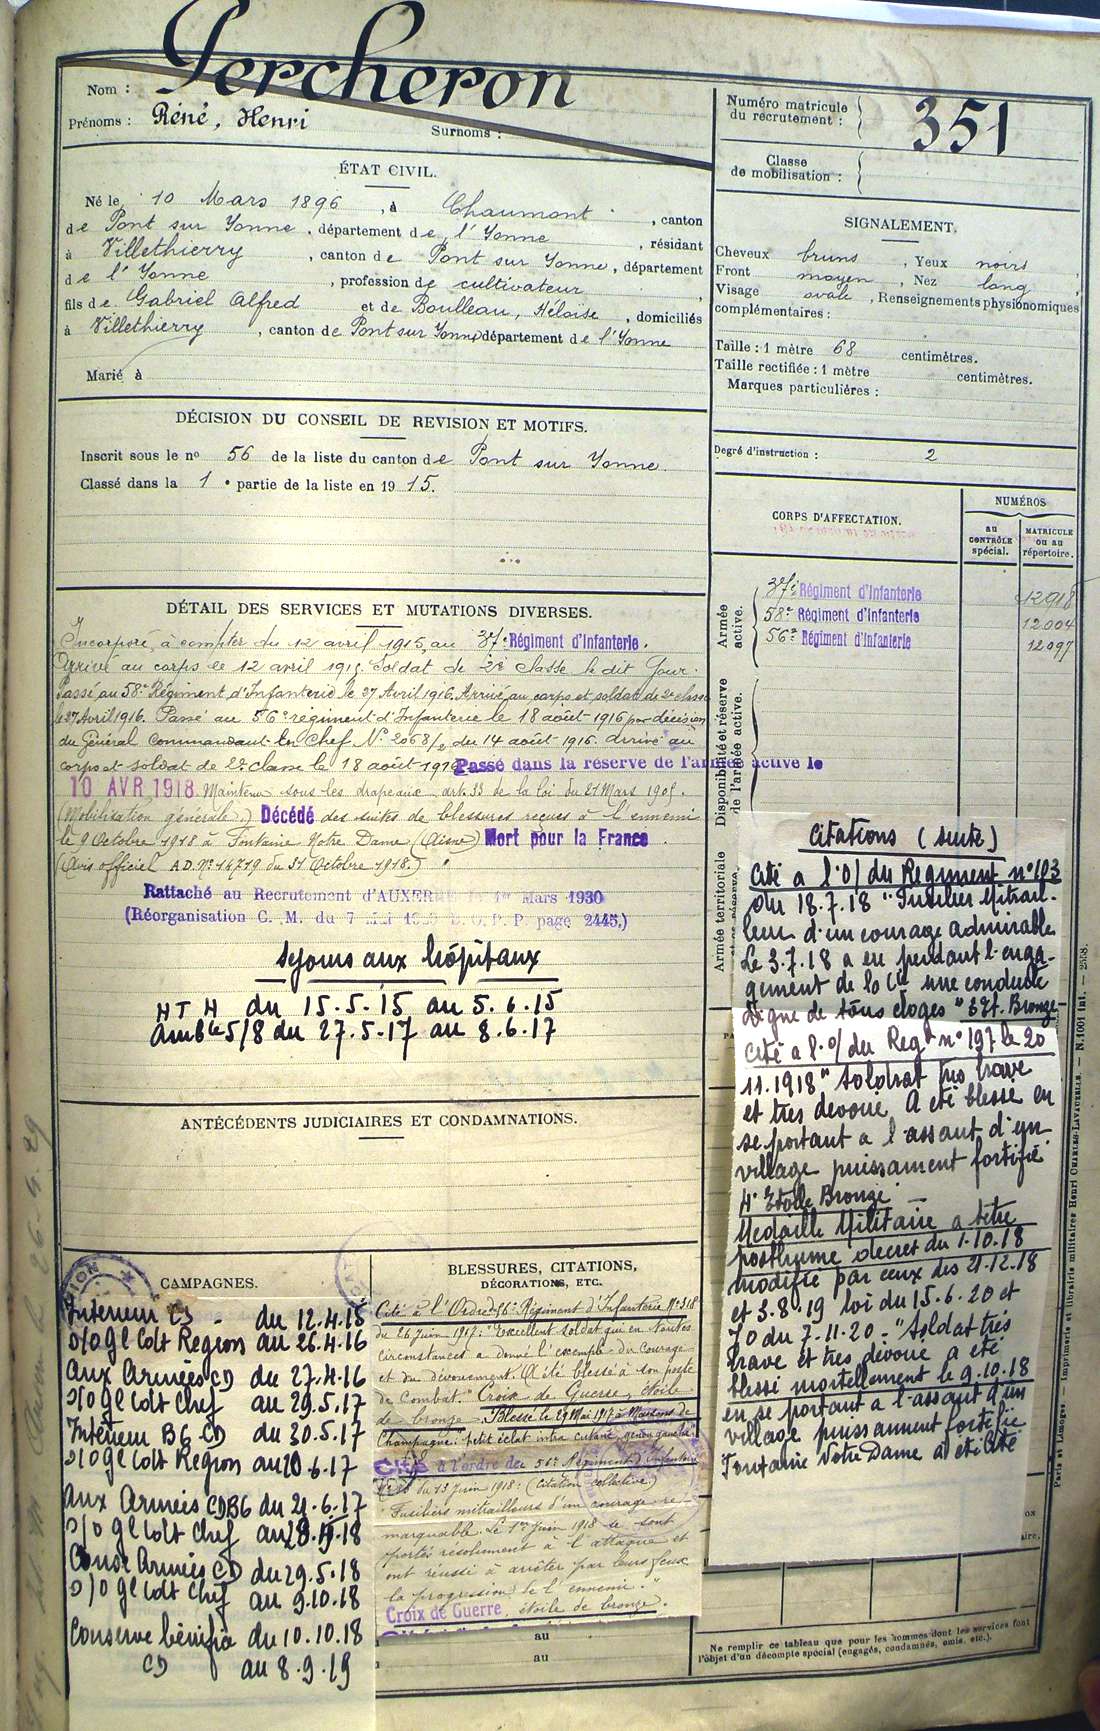 Nom : Percheron
Prénoms : Réné, Henri Surnoms :
Numéro matricule du recrutement : 351
Classe de mobilisation :
ÉTAT CIVIL.
Né le 10 Mars 1896, à Chaumont, canton
de Pont sur Yonne, département de l'Yonne, résidant
à Villethierry, canton de Pont sur Yonne, département
de l'Yonne, profession de cultivateur,
fils de Gabriel Alfred et de Boulleau, Héloïse, domiciliés
à Villethierry, canton de Pont sur Yonne, département de l'Yonne
Marié à
SIGNALEMENT.
Cheveux bruns, Yeux noirs,
Front moyen, Nez long,
Visage ovale, Renseignements physionomiques
complémentaires :
Taille : 1 mètre 68 centimètres.
Taille rectifiée : 1 mètre centimètres.
Marques particulières :
Degré d'instruction : 2
DÉCISION DU CONSEIL DE REVISION ET MOTIFS.
Inscrit sous le no 56 de la liste du canton de Pont sur Yonne.
Classé dans la 1e partie de la liste en 1915.
CORPS D'AFFECTATION.
NUMÉROS
au CONTRÔLE spécial.
MATRICULE ou au répertoire.
Armée active.
37e Régiment d'Infanterie 12918
58e Régiment d'Infanterie 12004
56e Régiment d'Infanterie 12097
Disponibilité et réserve de l'armée active.
Armée territoriale
DÉTAIL DES SERVICES ET MUTATIONS DIVERSES.
Incorporé à compter du 12 avril 1915, au 37e Régiment d'Infanterie.
Arrivé au corps le 12 avril 1915. Soldat de 2e classe le dit jour.
Passé au 58e Régiment d'Infanterie le 27 Avril 1916. Arrivé au corps et soldat de 2e classe
le 27 Avril 1916. Passé au 56e régiment d'Infanterie le 18 août 1916 par décision
du Général Commandant En Chef No 2068/2 du 14 août 1916. Arrivé au
corps et soldat de 2e classe le 18 août 1916. Passé dans la réserve de l'armée active le
10 AVR 1918. Maintenu sous les drapeaux, art. 33 de la loi du 21 Mars 1905.
(Mobilisation générale). Décédé des suites de blessures reçues à l'ennemi
le 9 Octobre 1918 à Fontaine Notre Dame (Aisne) Mort pour la France
(Avis officiel A.D. No 14719 du 31 Octobre 1918.)
Rattaché au Recrutement d'AUXERRE le 1er Mars 1930
(Réorganisation C. M. du 7 B. O. P. P page 2445.)
Sejours aux hôpitaux
HTH du 15.5.15 au 5.6.15
Ambce 5/8 du 27.5.17 au 8.6.17
ANTÉCÉDENTS JUDICIAIRES ET CONDAMNATIONS.
CAMPAGNES.
Intérieur CS du 12.4.15
s/o Gl Cdt Region au 26.4.16
aux Armées CD du 27.4.16
s/o Gl Cdt Chef au 29.5.17
Intérieur BG CD du 30.5.17
s/o Gl Cdt Region au 20.6.17
aux Armées CDBG du 21.6.17
s/o Gl Cdt Chef
Armées CD du 29.5.18
s/o Gl Cdt Chef au 9.10.18
Conserve bénéfice du 10.10.18
CD au 8.9.19
BLESSURES, CITATIONS,
DÉCORATIONS, ETC.
Cité à l'Ordre du 56e Régiment d'Infanterie No 318
du 26 juin 1917 : "Excellent soldat qui en toutes
circonstances a donné l'exemple du courage
et du dévouement. A été blessé à son poste
de Combat." Croix de Guerre, étoile
de bronze. Blessé le 27 Mai 1917 à Maisons de
Champagne : "petit éclat intra cutané, genou gauche".
Cité à l'ordre du 56e Régiment d'Infanterie
du 13 Juin 1918 : (Citation collective)
"Fusiliers mitrailleurs d'un courage re-
marquable. Le 1er Juin 1918 se sont
portés résolument à l'attaque et
ont réussi à arrêter par leurs feux
la progression de l'ennemi."
Croix de Guerre, étoile de bronze.
au
au
Citations (suite)
Cité a l'O/ du Regiment no 103
du 18.7.18 "Fusilier Mitrail-
leur d'un courage admirable
Le 3.7.18 a eu pendant l'enga-
gement de la Cie une conduite
digne de tous eloges" Et. Bronze
Cité a l'O/ du Regt no 197 le 20
11.1918 "Soldat tres brave
et tres devoué. A eté blessé en
se portant a l'assaut d'un
village puissament fortifié
Etoile Bronze
Medaille Militaire a titre
posthume decret du 1.10.18
modifié par ceux des 21.12.18
et 3.8.19 loi du 15.6.20 et
JO du 7.11.20 - "Soldat tres
brave et tres devoué a eté
blessé mortellement le 9.10.18
en se portant a l'assaut d'un
village puissament fortifié
Fontaine Notre Dame a eté cité
Ne remplir ce tableau que pour les sommes dont les services font
l'objet d'un décompte spécial (engagés, condamnés, omis, etc.).
Paris et Limoges. — Imprimerie et librairie militaires Henri CHARLES-LAVAUZELLE. — N. 1001 int. — 2558.